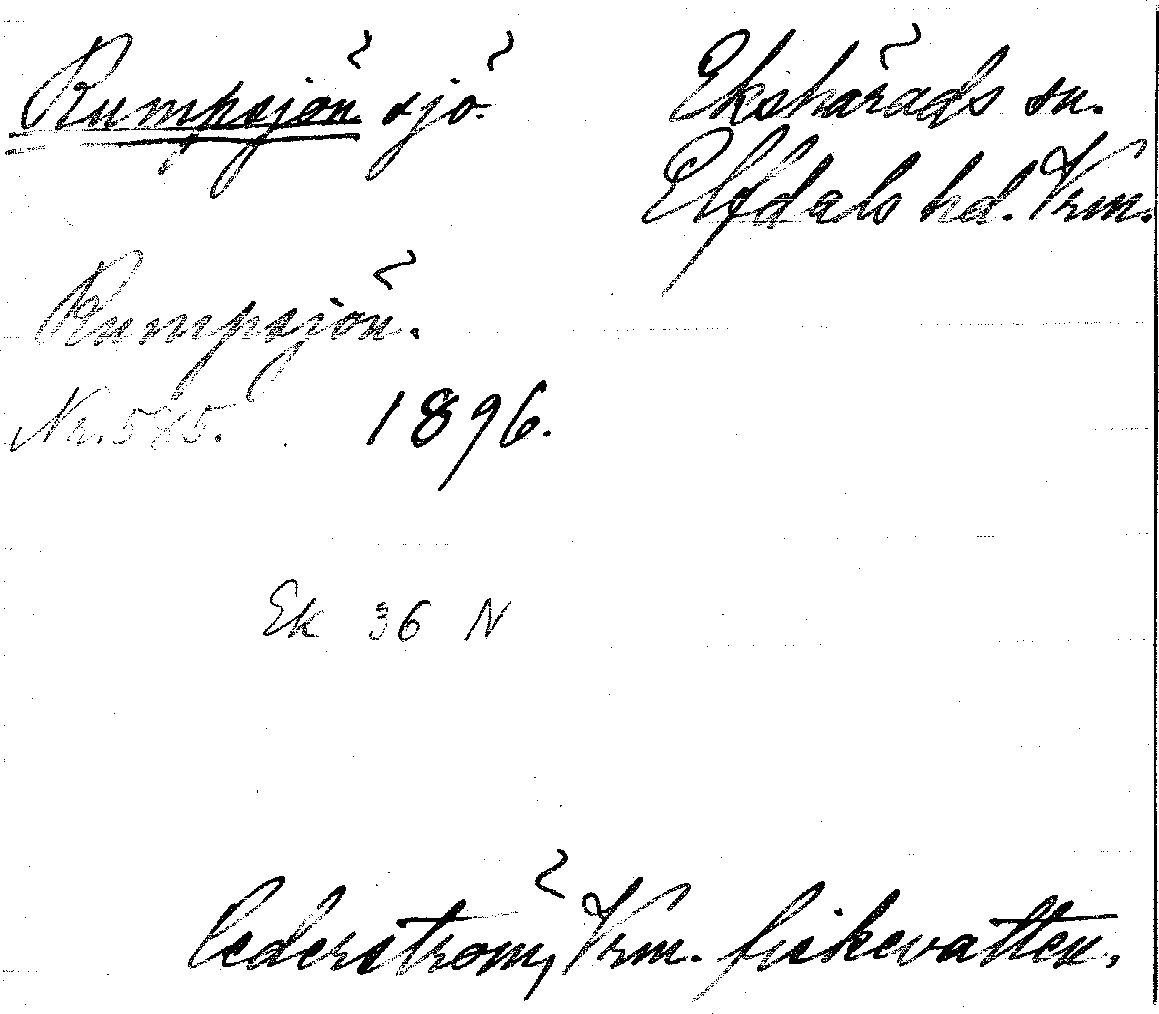 Rumpsjön sjö.
Ekshärads sn.
Elfdals hd. Vrm.
Rumpsjön.
Nr. 1896.
Ek 36 N
Cederström, Vrm. fiskevatten.